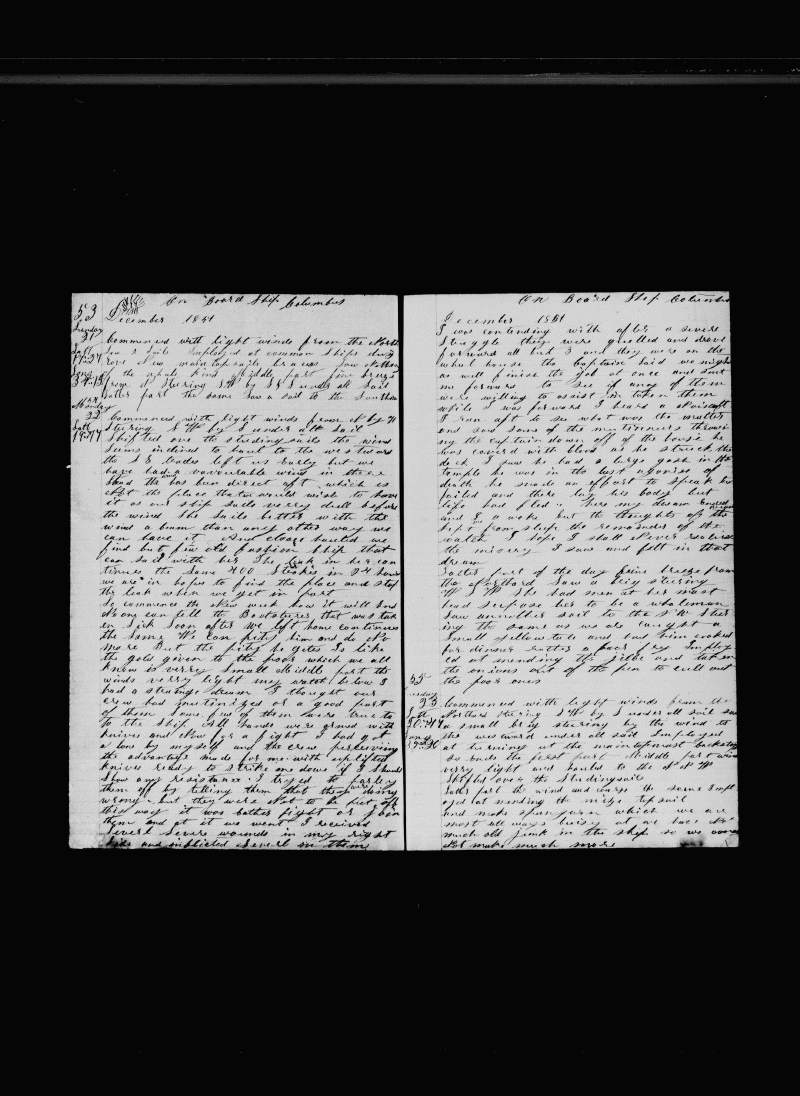 53
On Board Ship Columbus
December 1851
Sunday
21
Commenced with light winds from the North
Saw 2 Sails Imployed at common Ships duty
Latt
17:34
rove new main topsail braces
Long
of the Middle part fine brees
from N Steering SW by S 1/2 S under all Sail
Later part the same Saw a Sail to the Southard
Monday
22
Commenced with light winds from N by W
Latt
19:47
Stering S W by S under all Sail
Shifted over the studing sails the wind
Seems inclined to haul to the westward
the S E trades left us early but we
have had a favourable wind in there
Stead tho has bin direct aft which is
not the place that we would wish to have
it as our Ship Sails verry dull before
the wind She Sails better with the
wind a beam than any other way we
can have it And close hauled we
find but few old fashion Ship that
can Sail with her The leak in her con
tinues the Same 400 Strokes in 24 hours
we are in hopes to find the place and stop
the leak when we get in port
So commence the New week how it will end
No one can tell the Boatsteerer that was tak
en Sick Soon after we left home continues
the Same We can pitty him and do No
more But the pitty he gets Is like
the gold given to the poor which we all
know is verry Small Middle part the
winds verry light my watch below I
had a strange dream I thought our
crew had mutinized or a good part
of them Some few of them were true to
to the Ship All hands were armed with
knives and Now for a fight I had got
a low by myself and the crew perserving
the advantage made for me with uplifted
knives ready to Strike me down if I Should
Show any resistance I tryed to parley
them off by telling them that they were doing
wrong but they were Not to be put off
this way it was eather fight or Join
them and at it we went I received
Severl Severe wounds in my right
Side and inflicted Severl in them
On Board Ship Columbus
December 1851
I was contending with after a severe
Struggle they were quelled and drove
forward all but 3 and they were on the
wheel house the Captain Said we might
as well finish the Job at once and sent
me forward to See if any of them
were willing to assist in taken them
while I was forward I heard a Noise aft
I run aft to see what was the matter
and saw some of the mutineers throwi
ng the captain down off of the house he
was coverd with blood as he struck the
deck I saw he had a large gash in the
temple he was in the last agonies of
death he made an effort to speak but
failed and there lay his body but
life had fled Here my dream ended
and I a woke but the thoughts of the dream
kept me from sleep the remainder of the
watch I hope I shall Never realise
the misery I saw and felt in that
dream
Later part of the day fine breeze from
the Northard Saw a brig stering
W S W She had men at her mast
head Suppose her to be a whaleman
Saw annother Sail to the S W Ster
ing the same as we are caught a
Small yellow tale and had him cooked
for dinner rather a poor fry Imploy
ed at mending the Jibe and taken
the onions out of the pen to cull out
the poor ones
55
Tuesday
23
Commenced with light winds from the
Latt
20:47
Northard Stering S W by S under all Sail Saw
a small brig stering by the wind to
Long
the westward under all Sail Imployed
at turning up the maintopmast backstay
So ends the first part Middle part wind
verry light and hauled to the N N W
Shifted over the Studingsail
Later part the wind and course the same Impl
oyed at mending the mizen topsail
and make spunyarn which we are
most all ways buisy at we have No
much old Junk in the ship so we
Not make much more